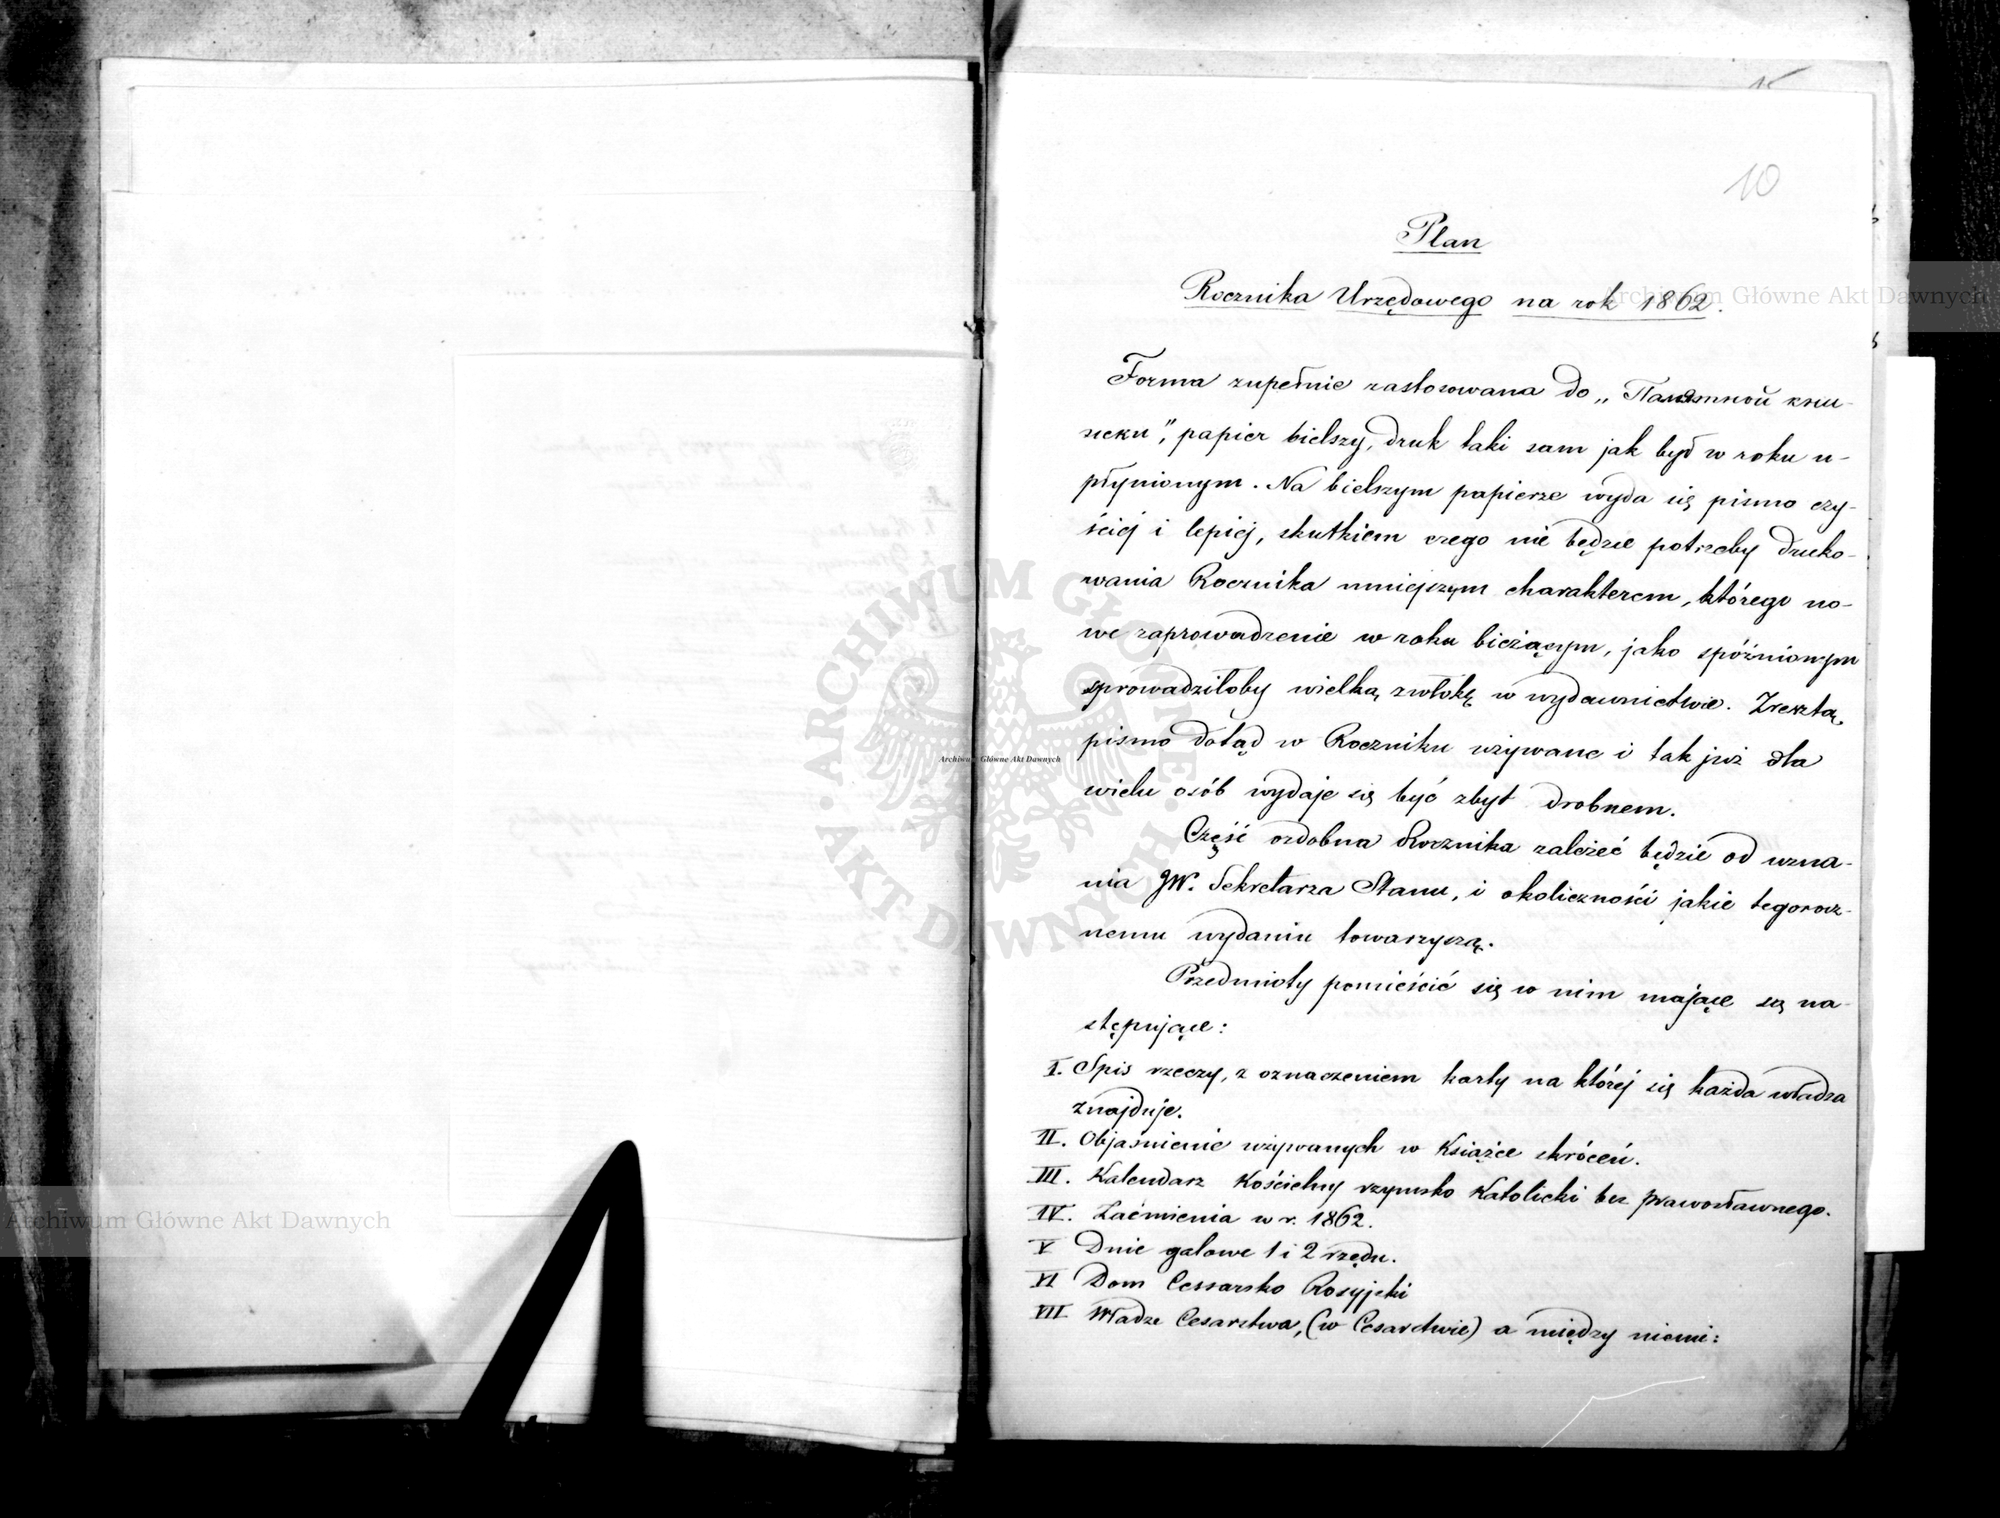 15
10
Plan
Rocznika Urzędowego na rok 1862.
Forma zupełnie zastosowana do „Памятной кни-
жки", papier bielszy, druk taki sam jak był w roku u-
płynionym. Na bielszym papierze wyda się pismo czy-
ściej i lepiej, skutkiem czego nie będzie potrzeby druko-
wania Rocznika mniejszym charakterem, którego no-
we zaprowadzenie w roku bieżącym, jako spóźnionym
sprowadziłoby wielką zwłokę w wydawnictwie. Zresztą,
pismo dotąd w Roczniku używane i tak już dla
wielu osób wydaje się być zbyt drobnem.
Część ozdobna Rocznika zależeć będzie od uzna-
nia JW. Sekretarza Stanu, i okoliczności jakie tegorocz-
nemu wydaniu towarzyszą.
Przedmioty pomieścić się w nim mające są na-
stępujące:
I. Spis rzeczy, z oznaczeniem karty na której się każda władza
znajduje.
II. Objaśnienie używanych w Książce skróceń.
III. Kalendarz Kościelny rzymsko Katolicki bez prawosławnego.
IV. Zaćmienia w r. 1862.
V Dnie galowe 1 i 2 rzędu.
VI Dom Cessarsko Rosyjski
VII Władze Cesarstwa, (w Cesarstwie) a między niemi:
Archiwum Główne Akt Dawnych
Archiwum Główne Akt Dawnych
Archiwum Główne Akt Dawnych
ARCHIWUM GŁÓWNE AKT DAWNYCH